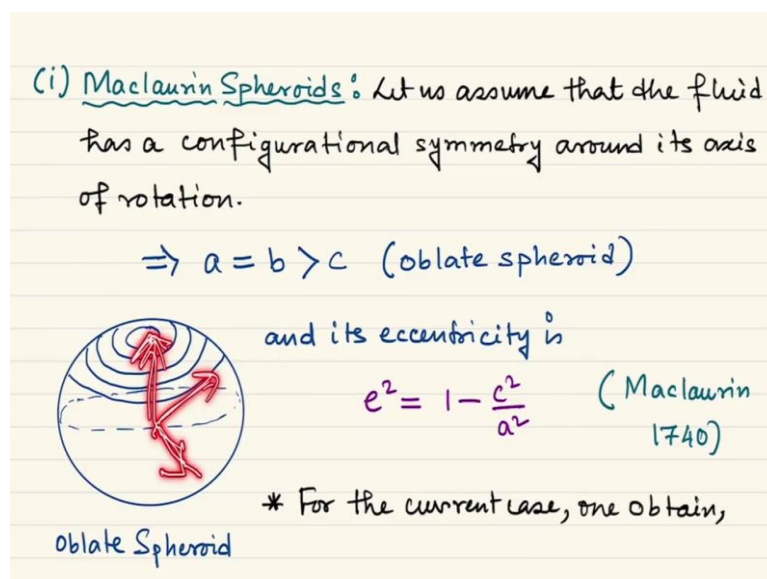 (i) Maclaurin Spheroids: Let us assume that the fluid
has a configurational symmetry around its axis
of rotation.
⇒ a = b > c (oblate spheroid)
and its eccentricity is
e² = 1 - c²/a² (Maclaurin
1740)
* For the current case, one obtain,
Oblate Spheroid